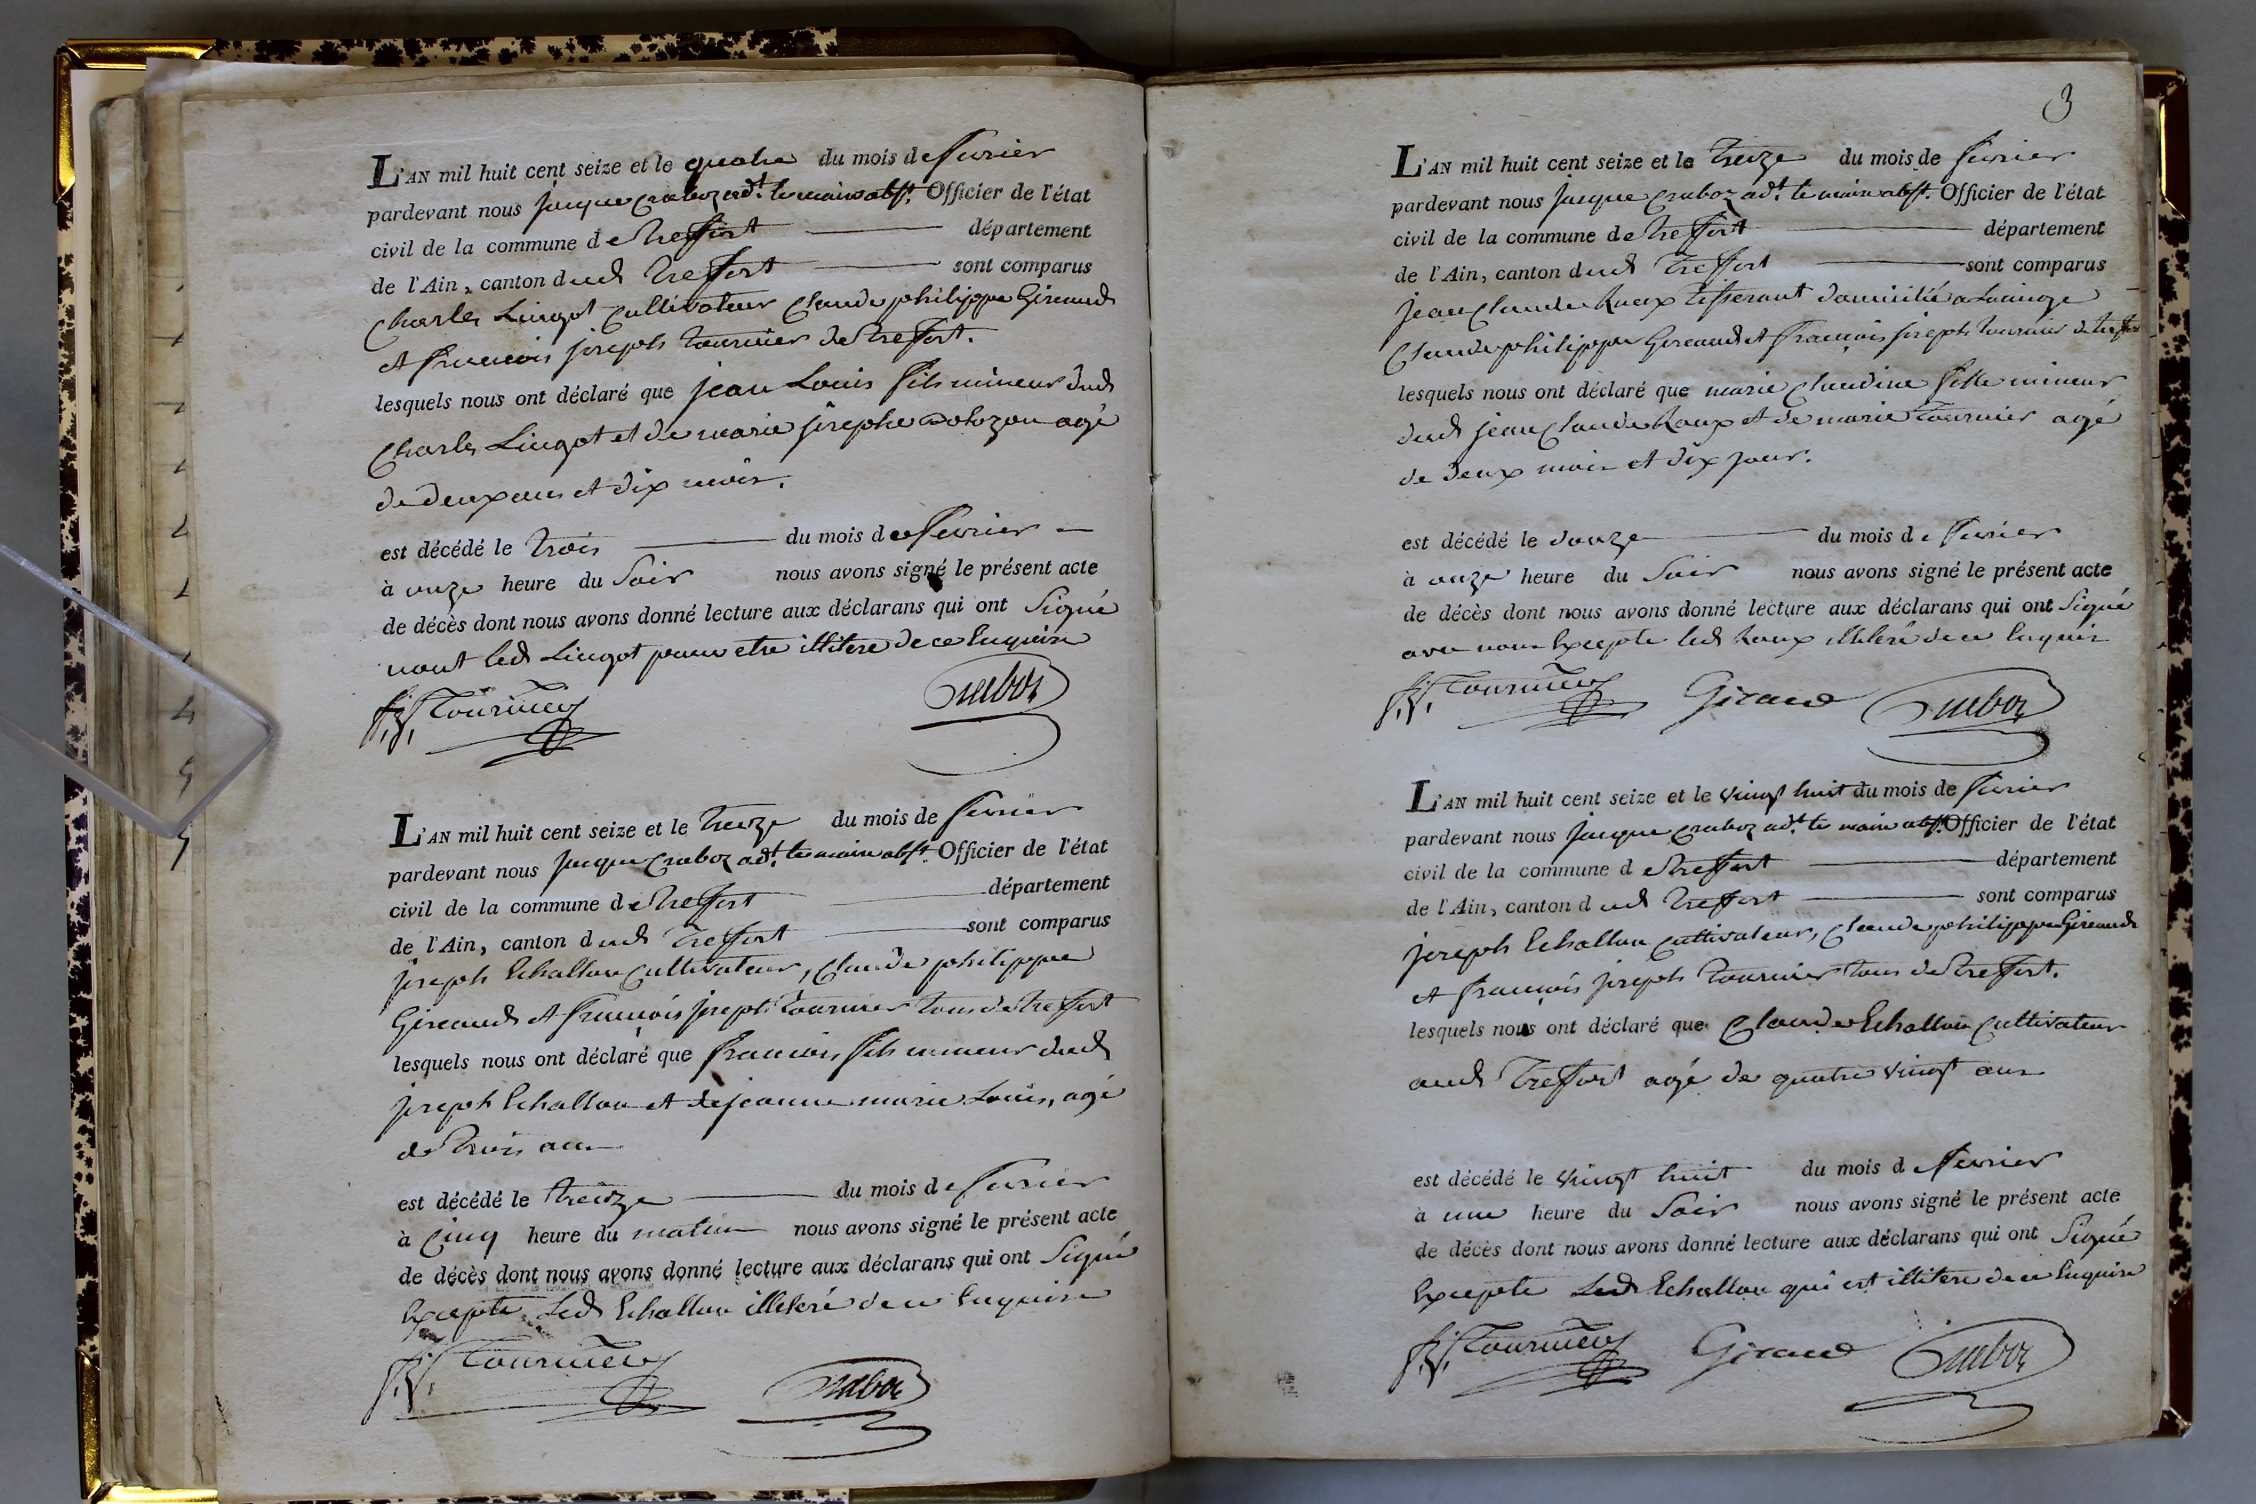 L'AN mil huit cent seize et le quatre du mois de fevrier
pardevant nous jacque Craboz adt. le maire abst. Officier de l'état
civil de la commune de treffort département
de l'Ain, canton dud treffort sont comparus
Charles Lingot Cultivateur Claude philippe Giraud
et francois joseph tournier de treffort.
lesquels nous ont déclaré que jean Louis fils mineur dud
Charles Lingot et de marie josephe agé
de deux ans et dix mois.
est décédé le trois du mois de fevrier
à onze heure du soir nous avons signé le présent acte
de décès dont nous avons donné lecture aux déclarans qui ont signé
nont led Lingot pour etre illitere de ce Enquise
f.j. tournier Craboz
L'AN mil huit cent seize et le treize du mois de fevrier
pardevant nous jacque Craboz adt. le maire abst. Officier de l'état
civil de la commune de treffort département
de l'Ain, canton dud treffort sont comparus
joseph Echallon Cultivateur, Claude philippe
Giraud et francois joseph tournier tous de treffort
lesquels nous ont déclaré que francois fils mineur dud
joseph Echallon et de jeanne marie Louis, agé
de trois ans
est décédé le treize du mois de fevrier
à Cinq heure du matin nous avons signé le présent acte
de décès dont nous avons donné lecture aux déclarans qui ont signé
Excepte Led Echallon illiteré de ce Enquise
f.j. tournier Craboz
3
L'AN mil huit cent seize et le treize du mois de fevrier
pardevant nous jacque Craboz adt. le maire abst. Officier de l'état
civil de la commune de treffort département
de l'Ain, canton dud treffort sont comparus
jean Claude Roux tisserant domicilié a
Claude philippe Giraud et francois joseph tournier de treffort
lesquels nous ont déclaré que marie Claudine fille mineur
dud jean Claude Roux et de marie tournier agé
de deux mois et dix jour.
est décédé le douze du mois de fevrier
à onze heure du soir nous avons signé le présent acte
de décès dont nous avons donné lecture aux déclarans qui ont signé
avec nous Excepte led Roux illiteré de ce Enquis
f.j. tournier Giraud Craboz
L'AN mil huit cent seize et le vingt huit du mois de fevrier
pardevant nous jacque Craboz adt. le maire abst. Officier de l'état
civil de la commune de treffort département
de l'Ain, canton dud treffort sont comparus
joseph Echallon Cultivateur, Claude philippe Giraud
et francois joseph tournier tous de treffort.
lesquels nous ont déclaré que Claude Echallon Cultivateur
aud treffort agé de quatre vingt ans
est décédé le vingt huit du mois de fevrier
à une heure du soir nous avons signé le présent acte
de décès dont nous avons donné lecture aux déclarans qui ont signé
Excepte Led Echallon qui est illitere de ce Enquise
f.j. tournier Giraud Craboz